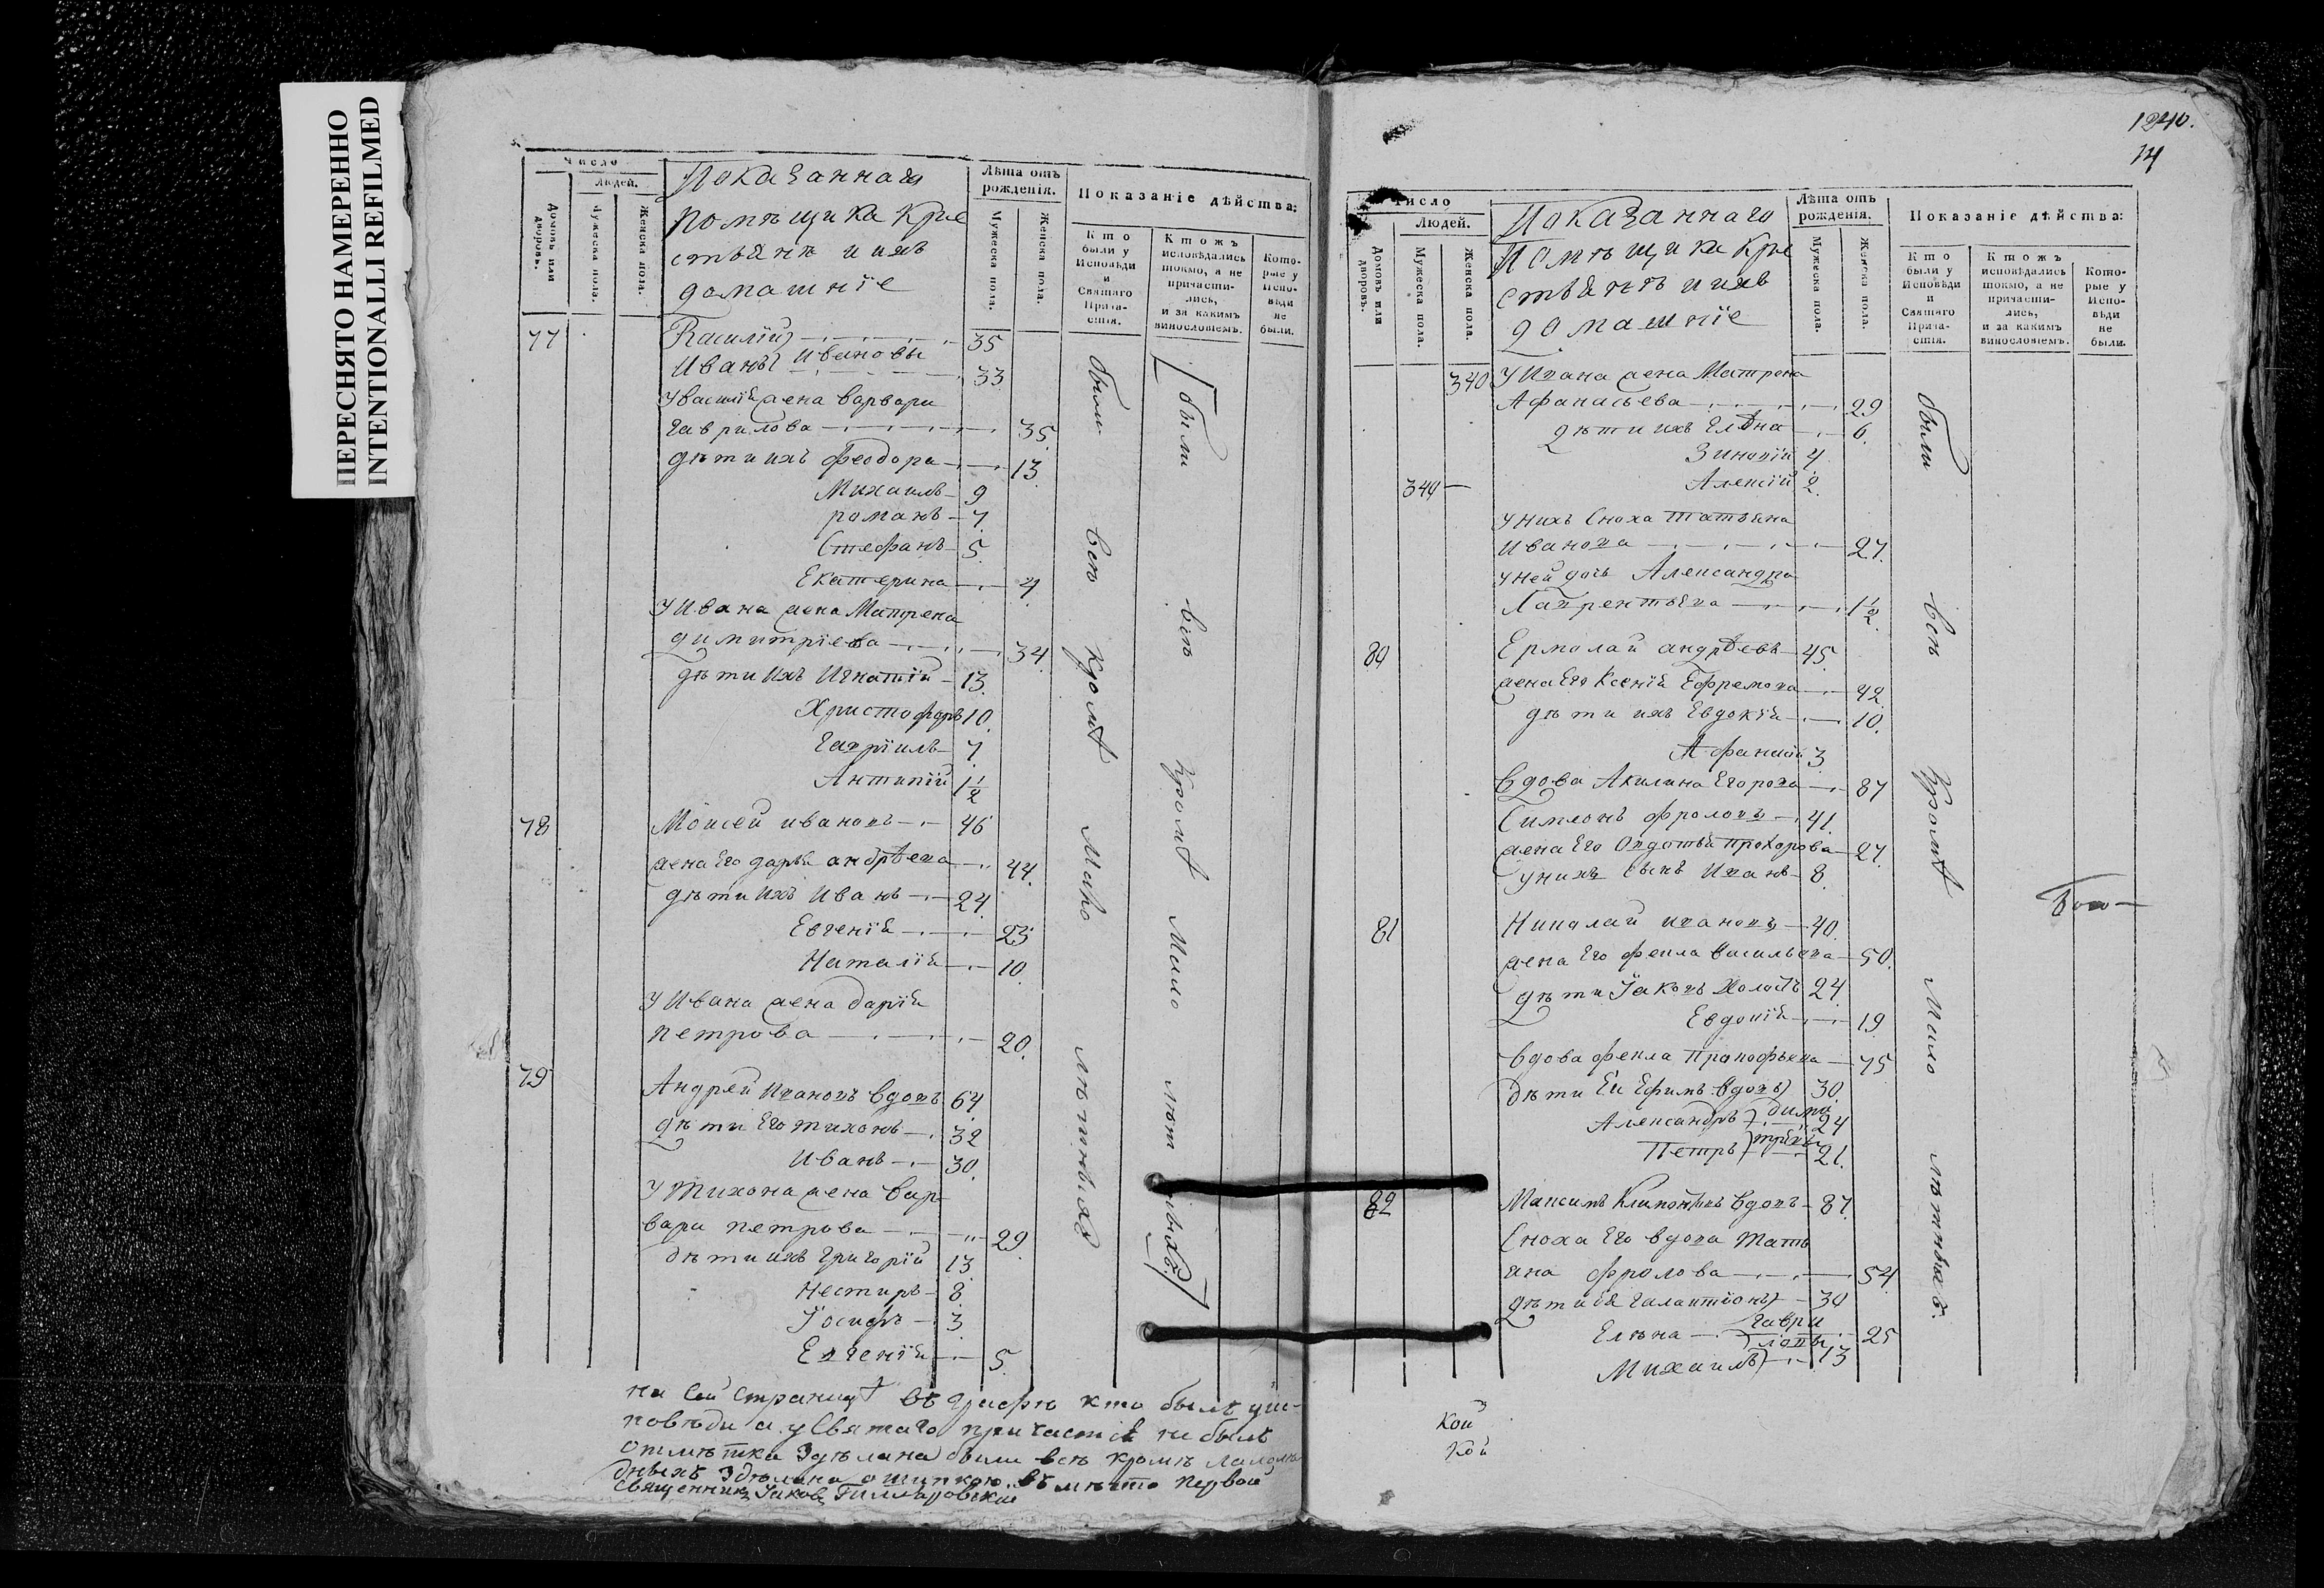 ПЕРЕСНЯТО НАМЕРЕННО
INTENTIONALLI REFILMED
Число
Людей.
Домовъ или дворовъ.
Мужеска пола.
Женска пола.
Показаннаго
помѣщика кре
стьянѣ и ихъ
домашніе
Лѣта отъ рожденія.
Мужеска пола.
Женска пола.
Показаніе дѣйства:
Кто были у Исповѣди и Святаго Прича-стія.
Ктожъ исповѣдались токмо, а не причасти-лись, и за какимъ винословіемъ.
Кото-рые у Испо-вѣди не были.
77 Василій 35
Иванъ Ивановы 33
У Василія жена Варвара
Гаврилова 35
дѣти ихъ Феодора 13
Михаилъ 9
романъ 7
Стефанъ 5
Екатерина 4
У Ивана жена Матрена
димитріева 34
дѣти ихъ Игнатій 13
Христофоръ 10
Гавріилъ 7
Антипій 1 1/2
78 Моисей ивановъ 46
жена Его дарья андрѣева 44
дѣти ихъ Иванъ 24
Евгенія 23
Наталія 10
У Ивана жена дарія
петрова 20
79 Андрей Ивановъ вдовъ 64
дѣти Его тихонъ 32
Иванъ 30
У Тихона жена Вар
вара петрова 29
дѣти ихъ григорій 13
Нестиръ 8
Іосифъ 3
Евгенія 5
были всѣ кромѣ мало лѣтныхъ
были всѣ кромѣ мало лѣт ныхъ
на сей страницѣ въ графѣ кто былъ у ис-
повѣди а у Святаго причастія не былъ
отмѣтка Здѣлана были всѣ кромѣ малолѣ
тныхъ Здѣлана ошипкою въ мѣсто первой
священникъ Іаковъ
1240.
14
Число
Людей.
Домовъ или дворовъ.
Мужеска пола.
Женска пола.
Показаннаго
Помѣщика кре
стьянъ и ихъ
домашніе
Лѣта отъ рожденія.
Мужеска пола.
Женска пола.
Показаніе дѣйства:
Кто были у Исповѣди и Святаго Прича-стія.
Ктожъ исповѣдались токмо, а не причасти-лись, и за какимъ винословіемъ.
Кото-рые у Испо-вѣди не были.
340 У Ивана жена Матрена
Афанасьева 29
дѣти ихъ Елѣна 6
Зиновій 4
344 Алексій 2
у нихъ Сноха татьяна
Иванова 27
у ней дочь Александра
Лаврентьева 1 1/2
80 Ермолай андрѣевъ 45
жена Его Ксенія Ефремова 42
дѣти ихъ Евдокія 10
Афанасій 3
Вдова Акилина Егорова 87
Симеонъ фроловъ 41
жена Его Овдотья прохорова 27
у нихъ сынъ Иванъ 8
81 Николай ивановъ 40
жена Его фекла Васильева 50
дѣти Іаковъ холостъ 24
Евдокія 19
вдова фекла Прокофьева 75
дѣти Ея Ефимъ вдовъ 30
Александръ 24
Петръ 21
димитріевы
82 Максимъ вдовъ 87
Сноха Его вдова Тать
яна фролова 54
дѣти Ея Галактіонъ 30
Елѣна 25
Михаилъ 13
Гаври
ловы
были всѣ кромѣ мало лѣтныхъ
Кой
Кой